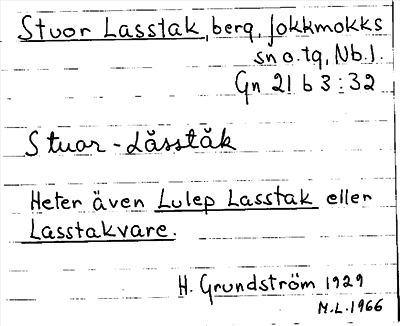 Stuor Lasstak, berg, Jokkmokks
sn o. tg, Nb.l.
Gn 21 b 3 : 32
Stuor-Låsståk
Heter även Lulep Lasstak eller
Lasstakvare.
H. Grundström 1929
M.L. 1966